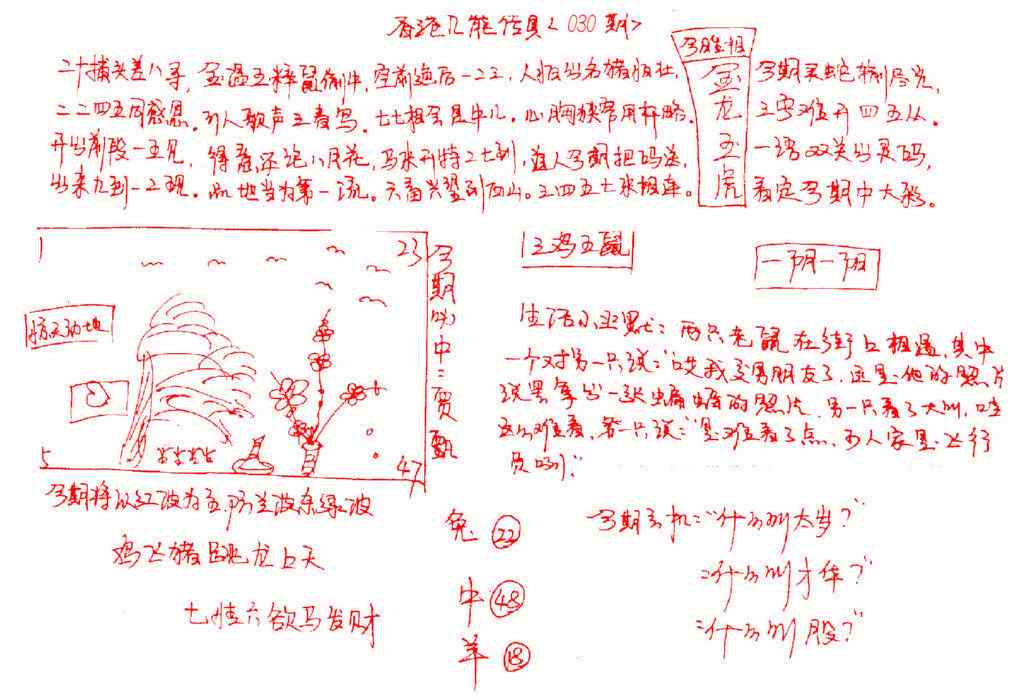 香港几能传真<030期>
二十横头差八寻,金鸡玉粹鼠偷牛,空前追后一23,人报出名猪报社,
二二四五同感恩。可人歌声三春写。七七相会是牛儿。心胸狭窄用杯路。
开出前段一五见,得意还说八月花,马来开特27到,道人今期把码送,
出来九到一2现。此地当为第一流。六畜兴望到西山。三四五七来报车。
今期生肖
金龙玉虎
今期买蛇输尽光,
三字难开四五从。
一语双关出灵码,
看定今期中大彩。
1
23
5
47
惊天动地
今期必中:贾甄
三鸡五鼠
一阴一阳
生活小幽默:两只老鼠在街上相遇,其中
一个对另一只说:"哎我交男朋友了,这是他的照片
说罢拿出一张蝙蝠的照片,另一只看了大叫,哇
这么难看,第一只说:"是难看了点,可人家是飞行
员咧:"
今期将以红波为主,防兰波杀绿波
鸡飞猪跳龙上天
七情六欲马发财
兔 22
中 48
羊 18
今期玄机:"什么叫太岁?"
:"什么叫才华?"
:"什么叫股?"